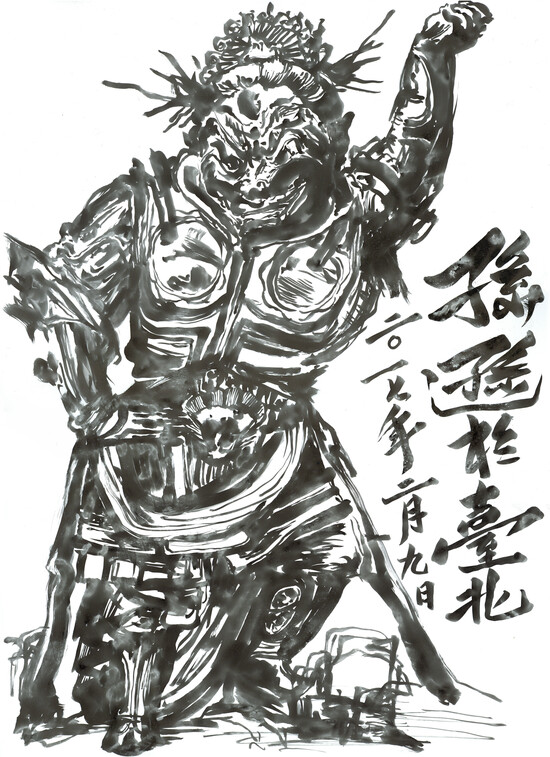 孫遜於臺北
二〇一七年二月九日